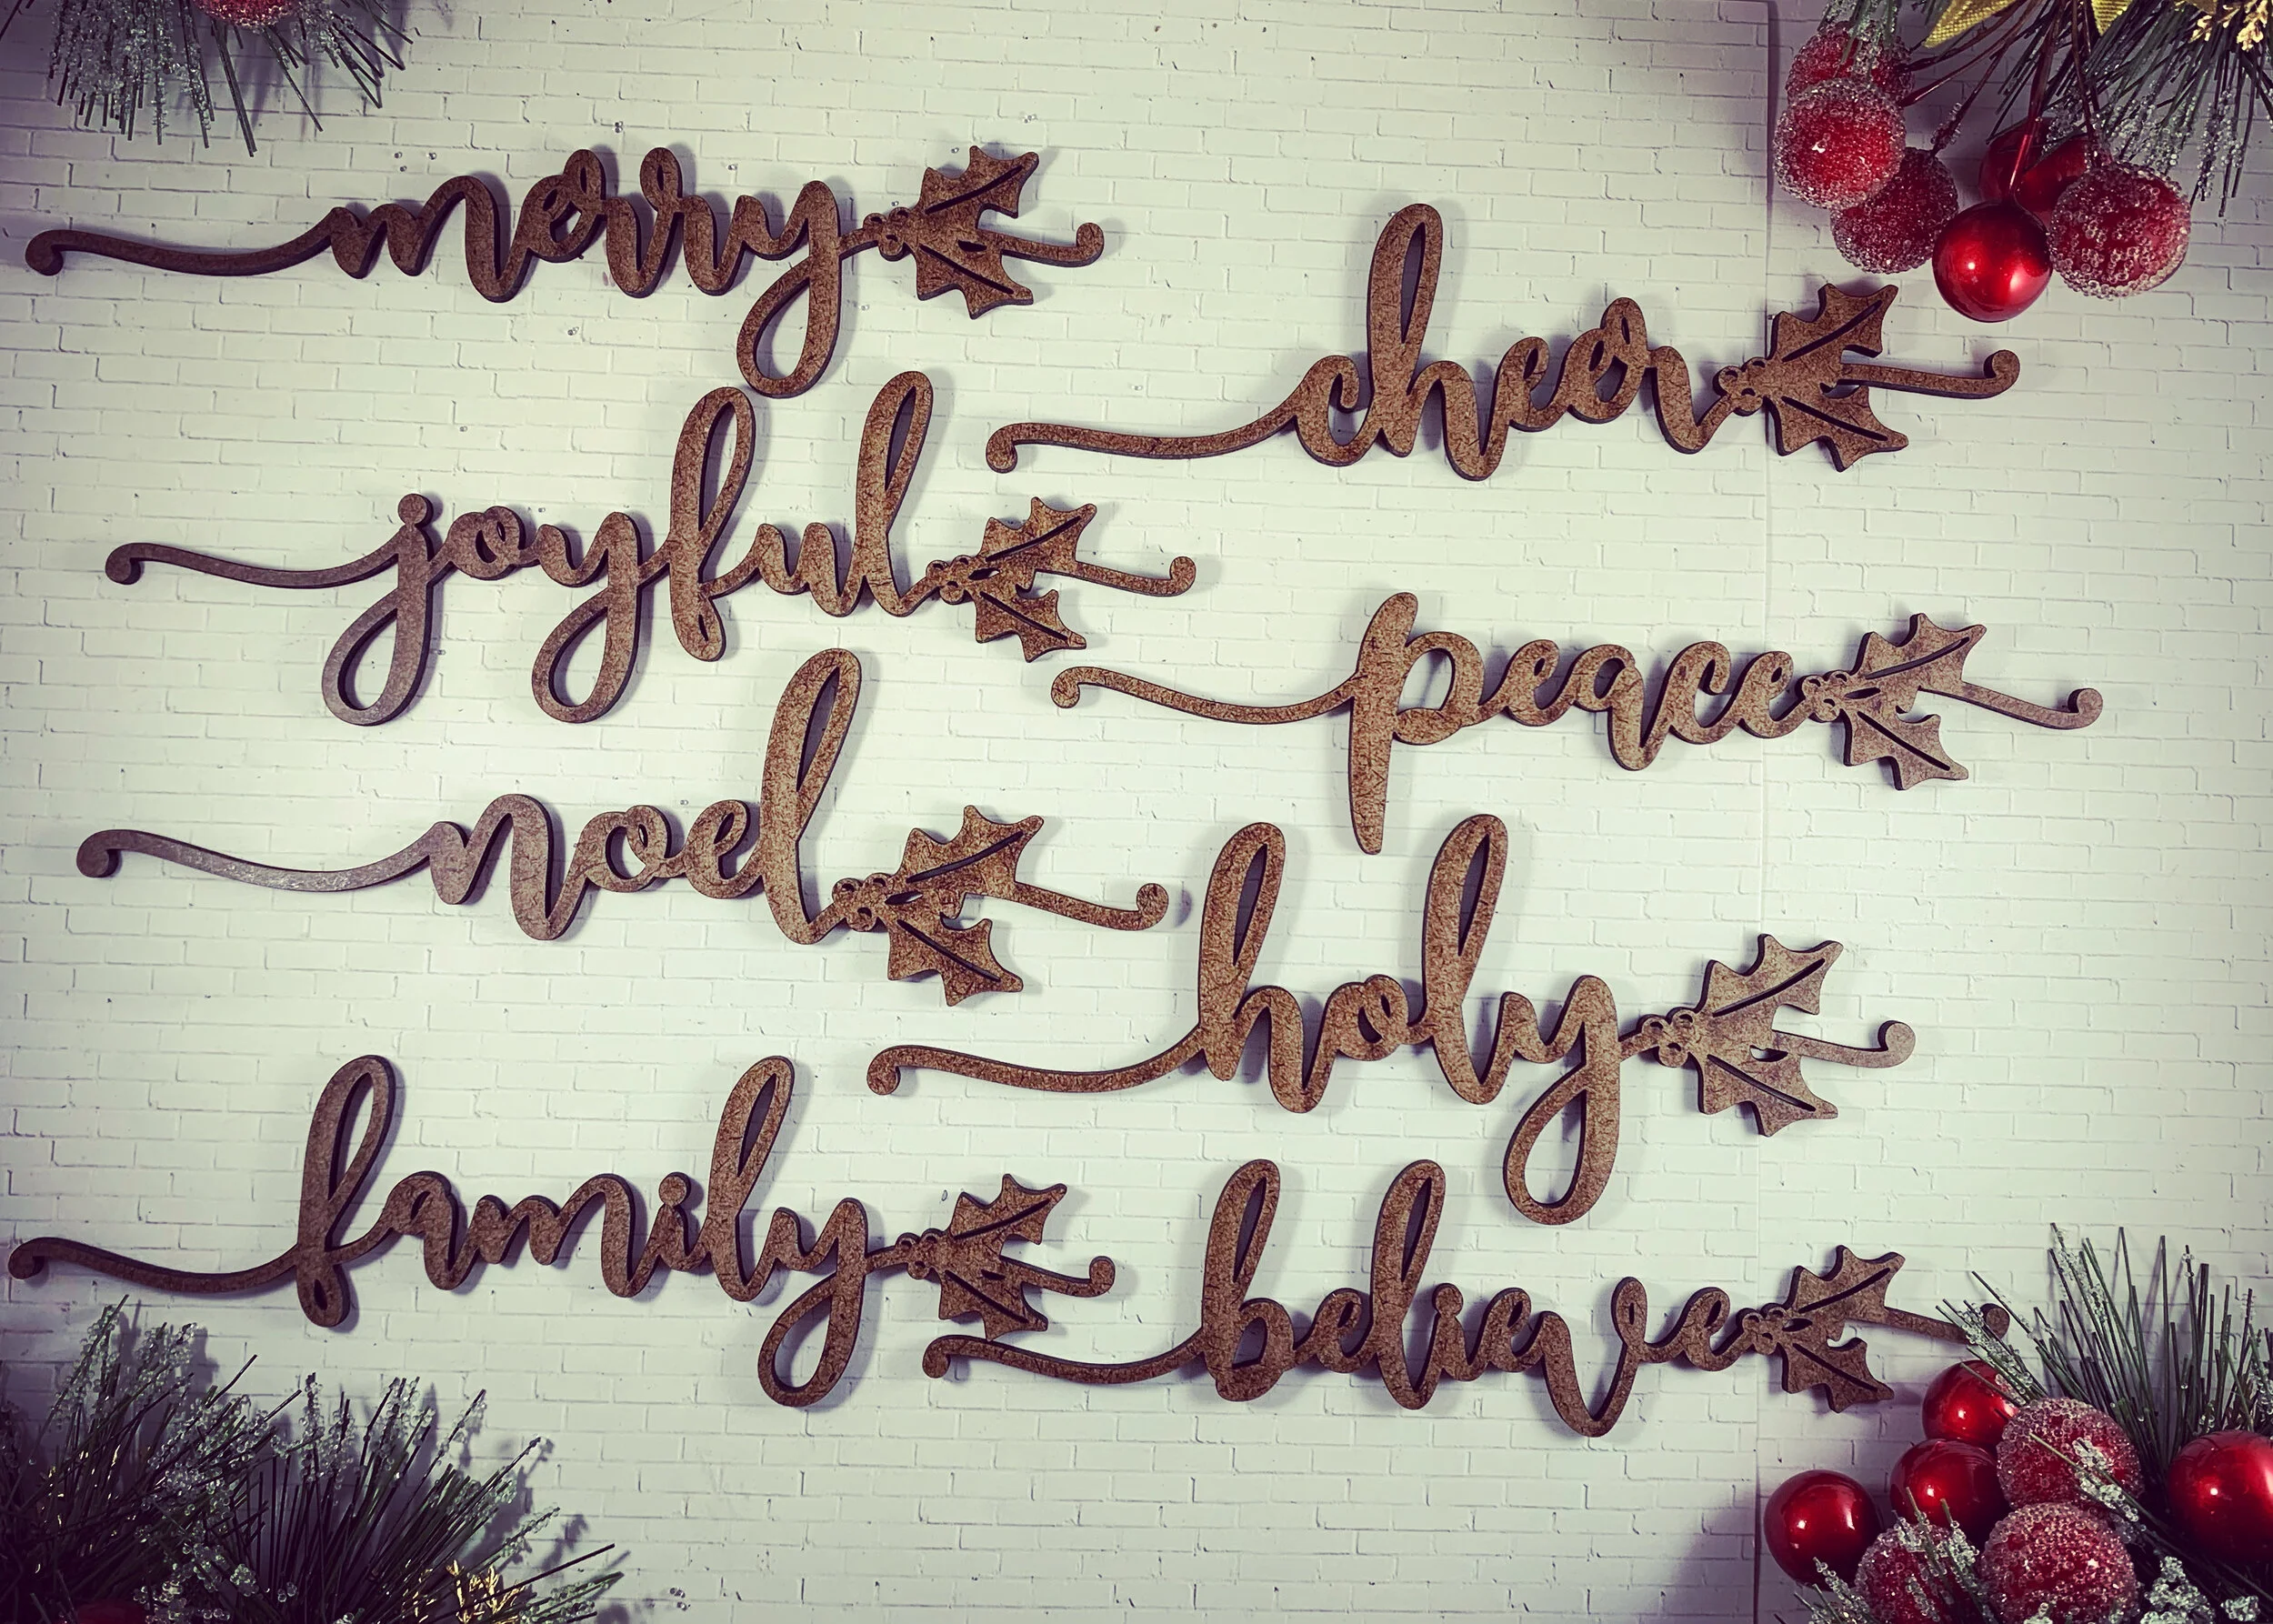 merry
cheer
joyful
peace
noel
holy
family
believe